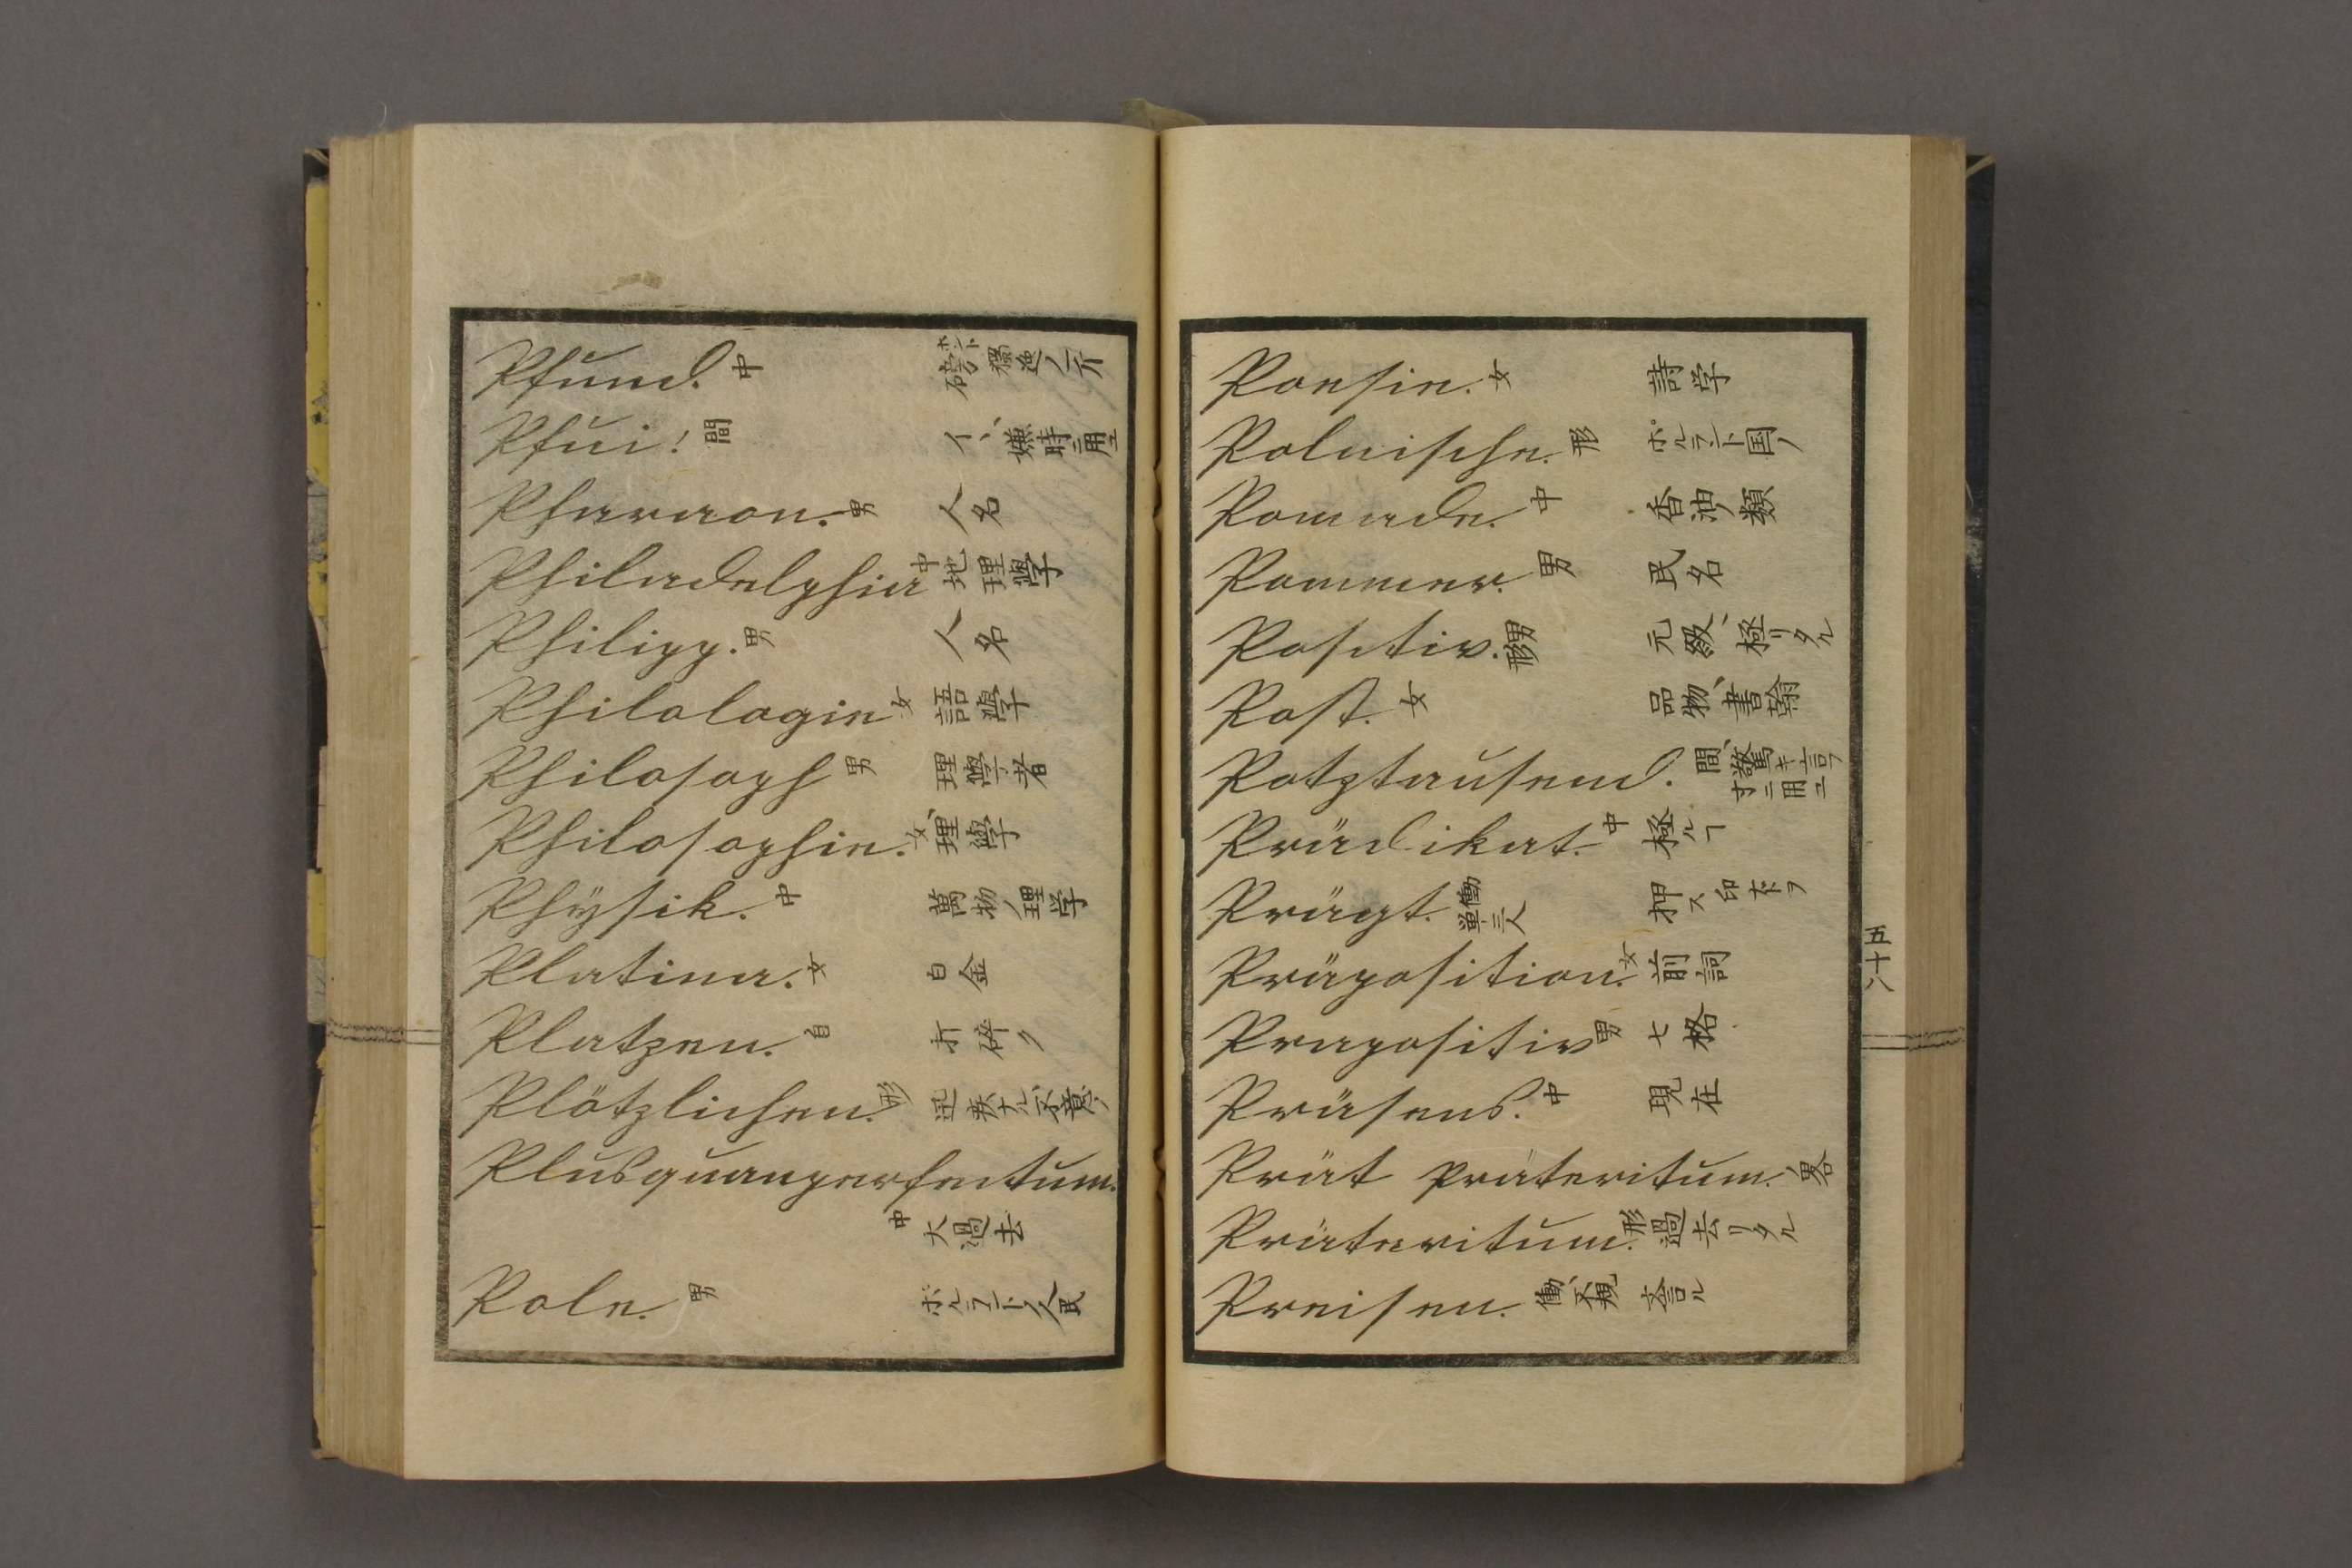 Pfund. 中 磅 ホント
Pfui! 間 イヽ嫌時ニ用ユ
Pharaon. 男 人名
Philadelphia 中 地理學
Philipp. 男 人名
Philologie 女 語學
Philosoph 男 理學者
Philosophie. 女 理學
Physik. 中 萬物ノ理学
Platina. 女 白金
Platzen. 自 碎ク
Plötzlichen. 形 迅疾ナル不意ノ
Plusquamperfectum.
中 大過去
Pole. 男 ポルラントノ人民
Poesie. 女 詩学
Polnische. 形 ポルラント国ノ
Pomade. 中 香油ノ類
Pommer. 男 民名
Positiv. 男 形 元級、極リタル
Post. 女 品物、書翰
Potztausend. 間、驚キ言フ
寸ニ用ユ
Prädikat. 中 極ルヿ
Prägt. 働単三人 押ス印ナドヲ
Präposition. 女 前詞
Prapositiv 男 七格
Präsens. 中 現在
Prät präteritum.
Präteritum. 形 過去リタル
Preisen. 働、不規
五十八